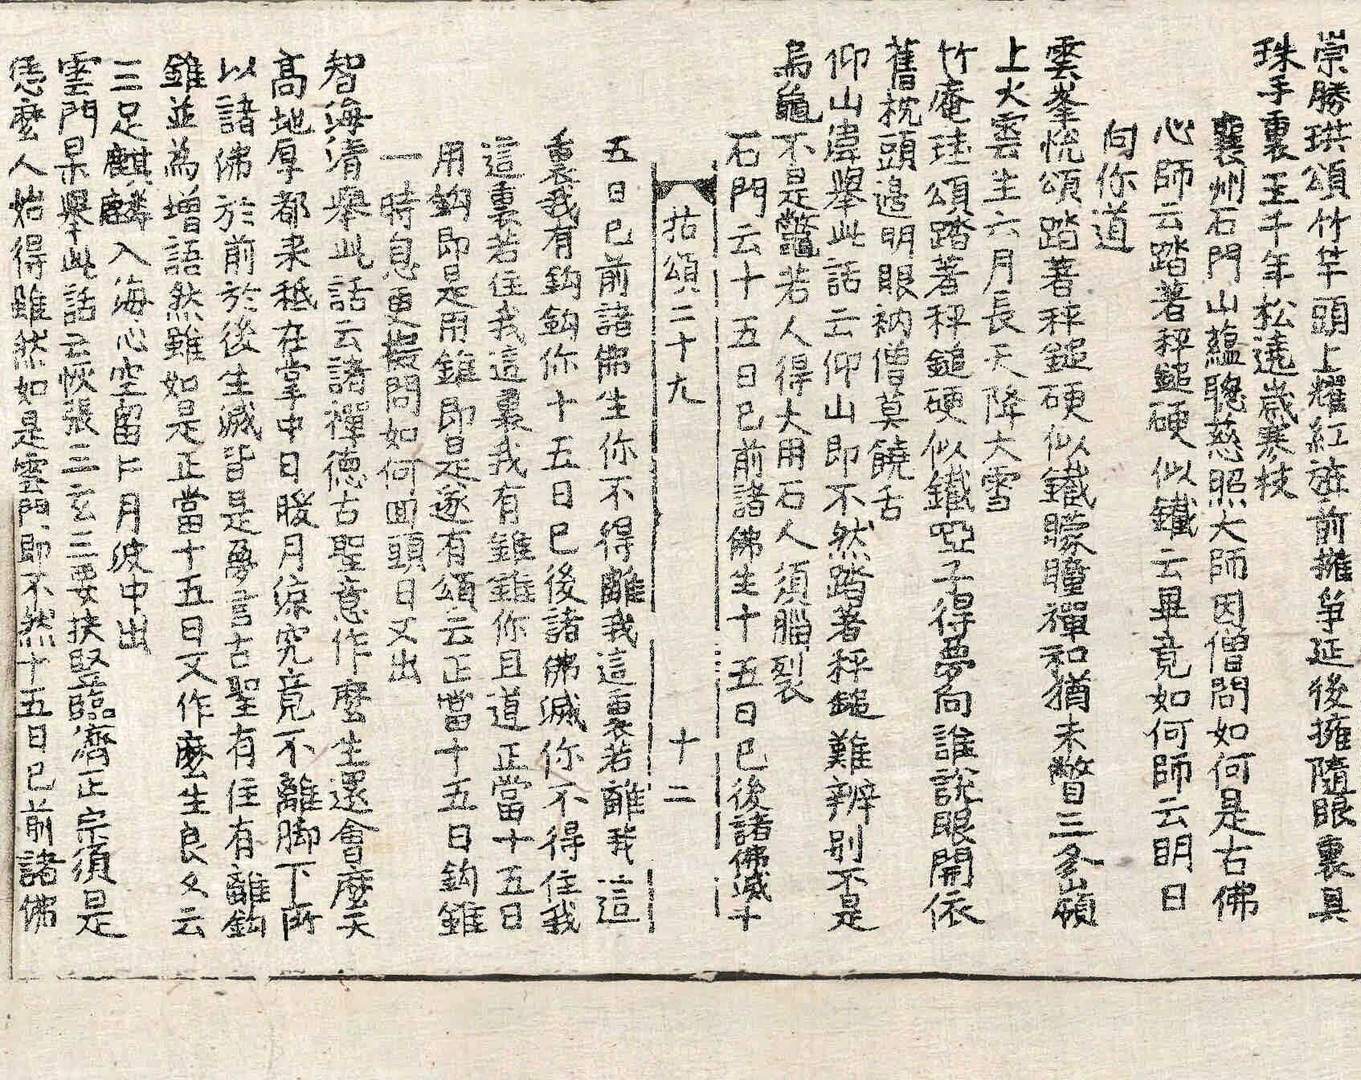 崇勝珙頌竹竿頭上耀紅旌前擁爭延後擁隨眼裏具
珠手裏玉千年松遶歲寒枝
襄州石門山蘊聰慈照大師因僧問如何是古佛
心師云踏著秤鎚硬似鐵云畢竟如何師云明日
向你道
雲峯恱頌踏著秤鎚硬似鐵矇瞳禪和猶未瞥三冬嶺
上火雲生六月長天降大雪
竹庵珪頌踏著秤鎚硬似鐵啞子得夢向誰說眼開依
舊枕頭邊明眼衲僧莫饒舌
仰山偉舉此話云仰山即不然踏著秤鎚難辨別不是
烏龜不是鼈若人得大用石人須腦裂
石門云十五日已前諸佛生十五日已後諸佛滅十
拈頌二十九 十二
五日已前諸佛生你不得離我這裏若離我這
裏我有鈎鈎你十五日已後諸佛滅你不得住我
這裏若住我這裏我有錐錐你且道正當十五日
用鈎即是用錐即是遂有頌云正當十五日鈎錐
一時息更擬問如何迴頭日又出
智海清舉此話云諸禪德古聖意作麼生還會麼天
高地厚都来秪在掌中日暖月凉究竟不離脚下所
以諸佛於前於後生滅皆是夢言古聖有住有離鈎
錐並為增語然雖如是正當十五日又作麼生良久云
三足麒麟入海心空留片月波中出
雲門杲舉此話云恢張三玄三要扶竪臨濟正宗須是
恁麼人始得雖然如是雲門即不然十五日已前諸佛